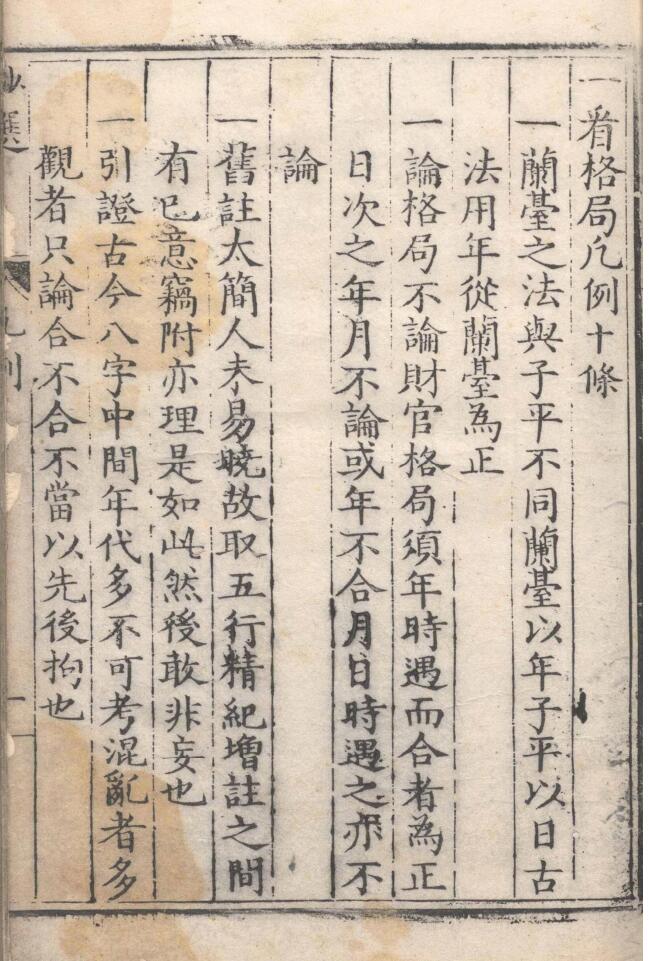 一看格局凡例十條
一蘭臺之法與子平不同蘭臺以年子平以日古
法用年從蘭臺為正
一論格局不論財官格局須年時遇而合者為正
日次之年月不論或年不合月日時遇之亦不
論
一舊註太簡人未易曉故取五行精紀增註之間
有已意竊附亦理是如此然後敢非妄也
一引證古今八字中間年代多不可考混亂者多
觀者只論合不合不當以先後拘也